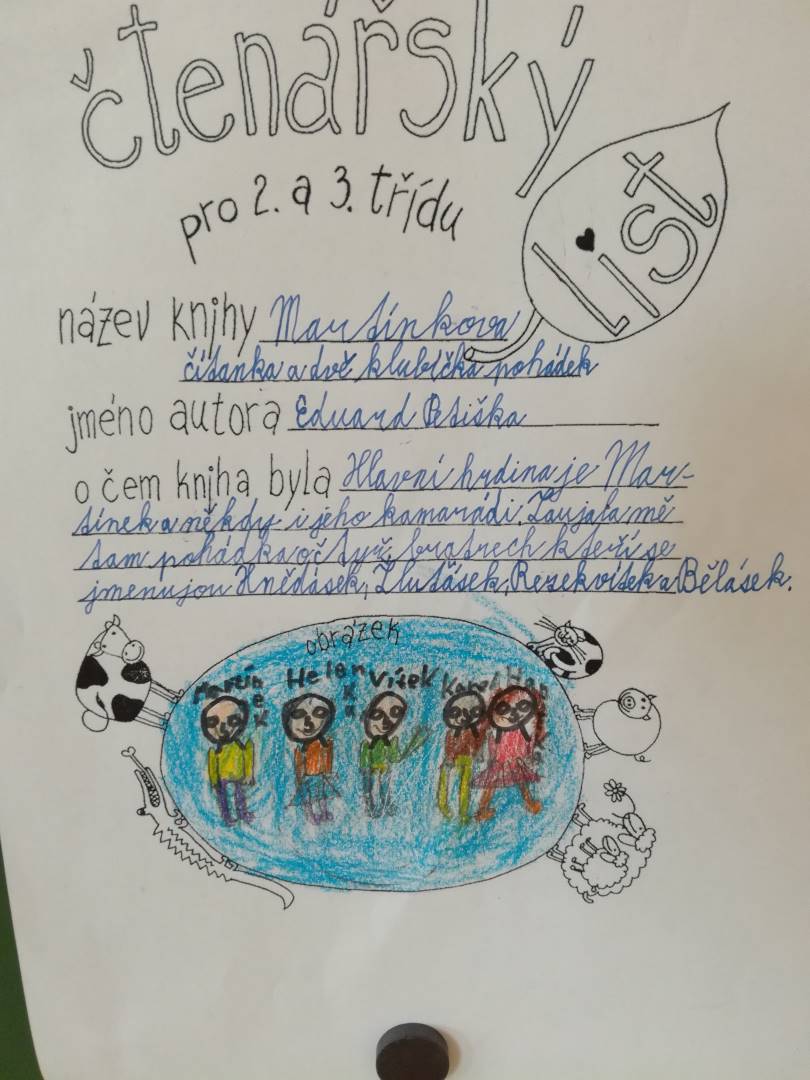 čtenářský
list
pro 2. a 3. třídu
název knihy Martínkova
čítanka a dvě klubíčka pohádek
jméno autora Eduard Petiška
o čem kniha byla Hlavní hrdina je Mar-
tínek a někdy i jeho kamarádi. Zaujala mě
tam pohádka o čtyř bratrech kteří se
jmenujou Hnědásek, Žluťásek, Rezekvítek a Bělásek.
obrázek
Martínek Helenka Víšek